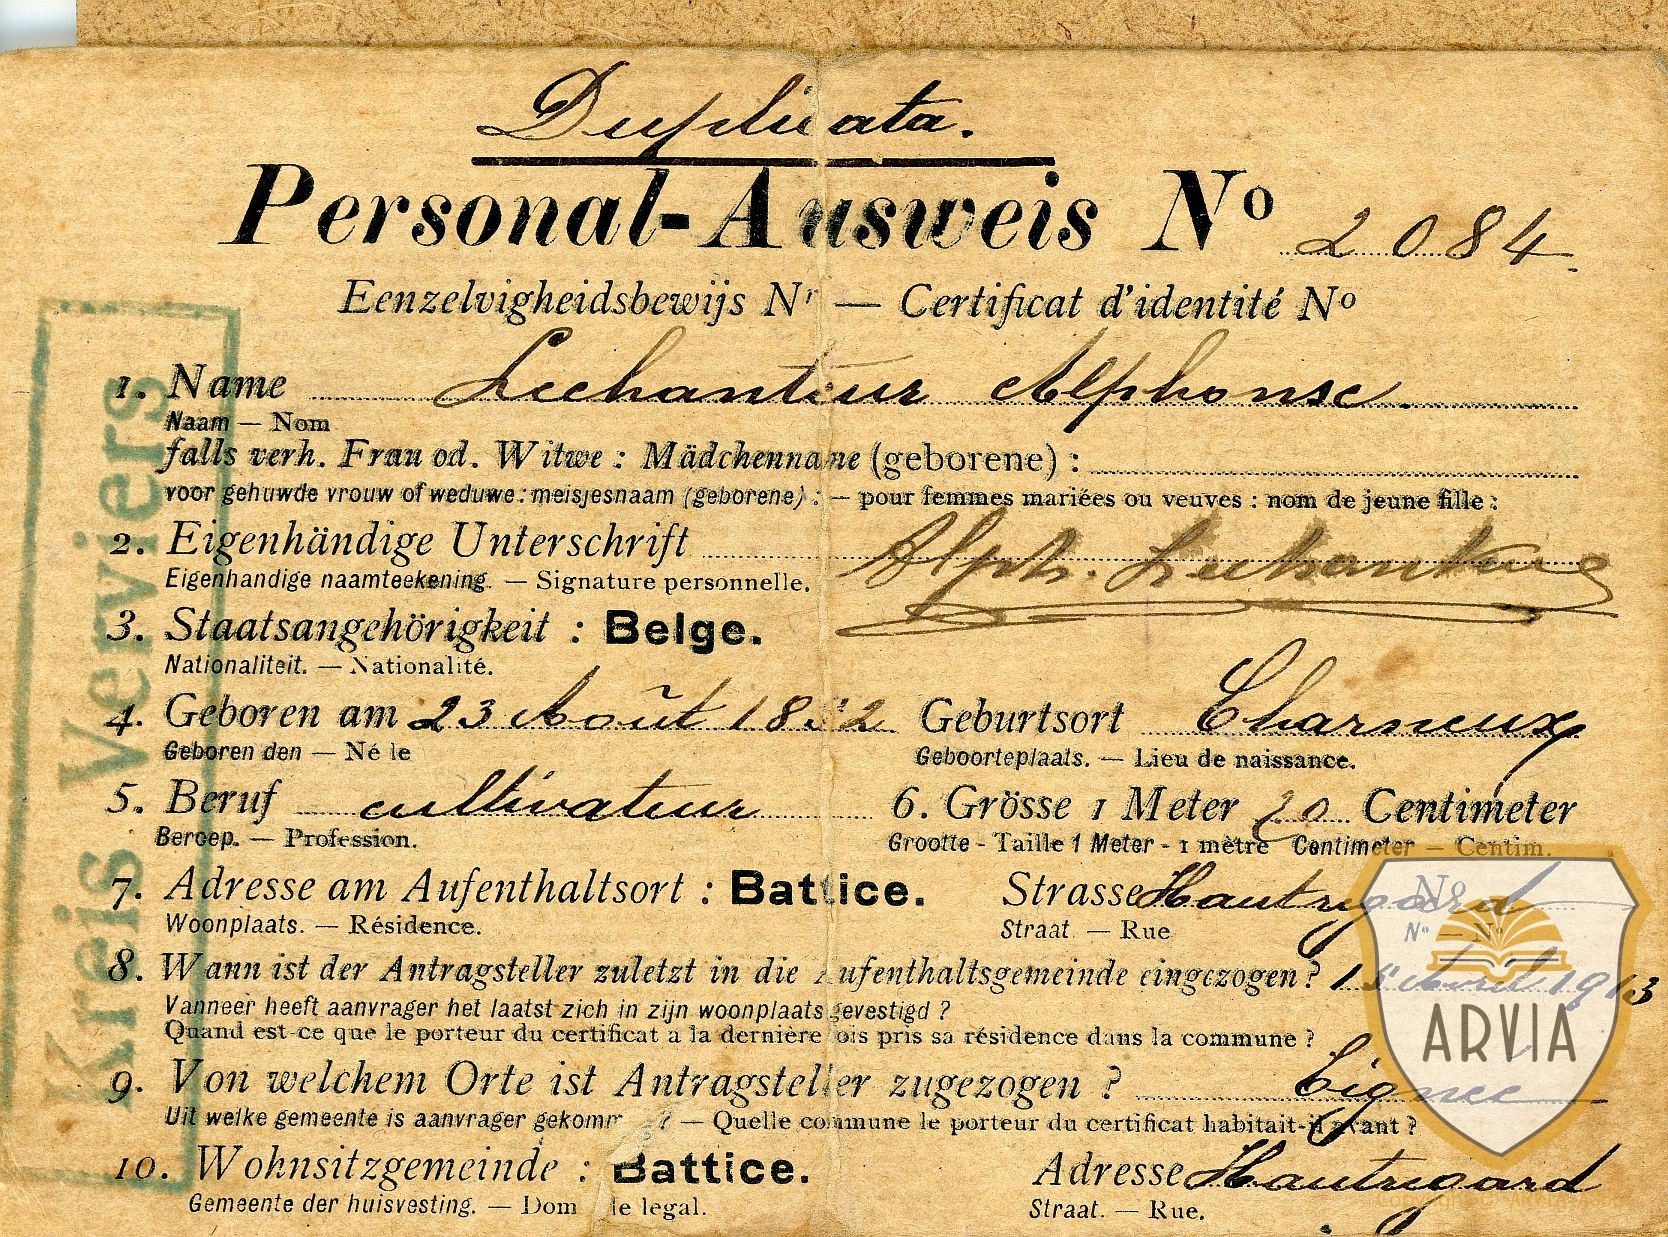 Duplicata.
Personal-Ausweis Nº 2084
Eenzelvigheidsbewijs Nr — Certificat d'identité Nº
1. Name Lechanteur Alphonse.
Naam — Nom
falls verh. Frau od. Witwe : Mädchenname (geborene) :
voor gehuwde vrouw of weduwe: meisjesnaam (geborene) : — pour femmes mariées ou veuves : nom de jeune fille :
2. Eigenhändige Unterschrift Alph. Lechanteur
Eigenhandige naamteekening. — Signature personnelle.
3. Staatsangehörigkeit : Belge.
Nationaliteit. — Nationalité.
4. Geboren am 23 Août 18 2 Geburtsort Charneux
Geboren den — Né le Geboorteplaats. — Lieu de naissance.
5. Beruf cultivateur 6. Grösse 1 Meter Centimeter
Beroep. — Profession. Grootte - Taille 1 Meter - 1 mètre Centimeter — Centim.
7. Adresse am Aufenthaltsort : Battice. Strasse Hautregard Nº
Woonplaats. — Résidence. Straat — Rue Nº — Nº
8. Wann ist der Antragsteller zuletzt in die Aufenthaltsgemeinde eingezogen? 15 Avril 1913
Vanneer heeft aanvrager het laatst zich in zijn woonplaats gevestigd ?
Quand est-ce que le porteur du certificat a la dernière fois pris sa résidence dans la commune ?
9. Von welchem Orte ist Antragsteller zugezogen ?
Uit welke gemeente is aanvrager gekomm ? — Quelle commune le porteur du certificat habitait-il avant ?
10. Wohnsitzgemeinde : Battice. Adresse Hautregard
Gemeente der huisvesting. — Dom le legal. Straat. — Rue.
Kreis Verviers
ARVIA